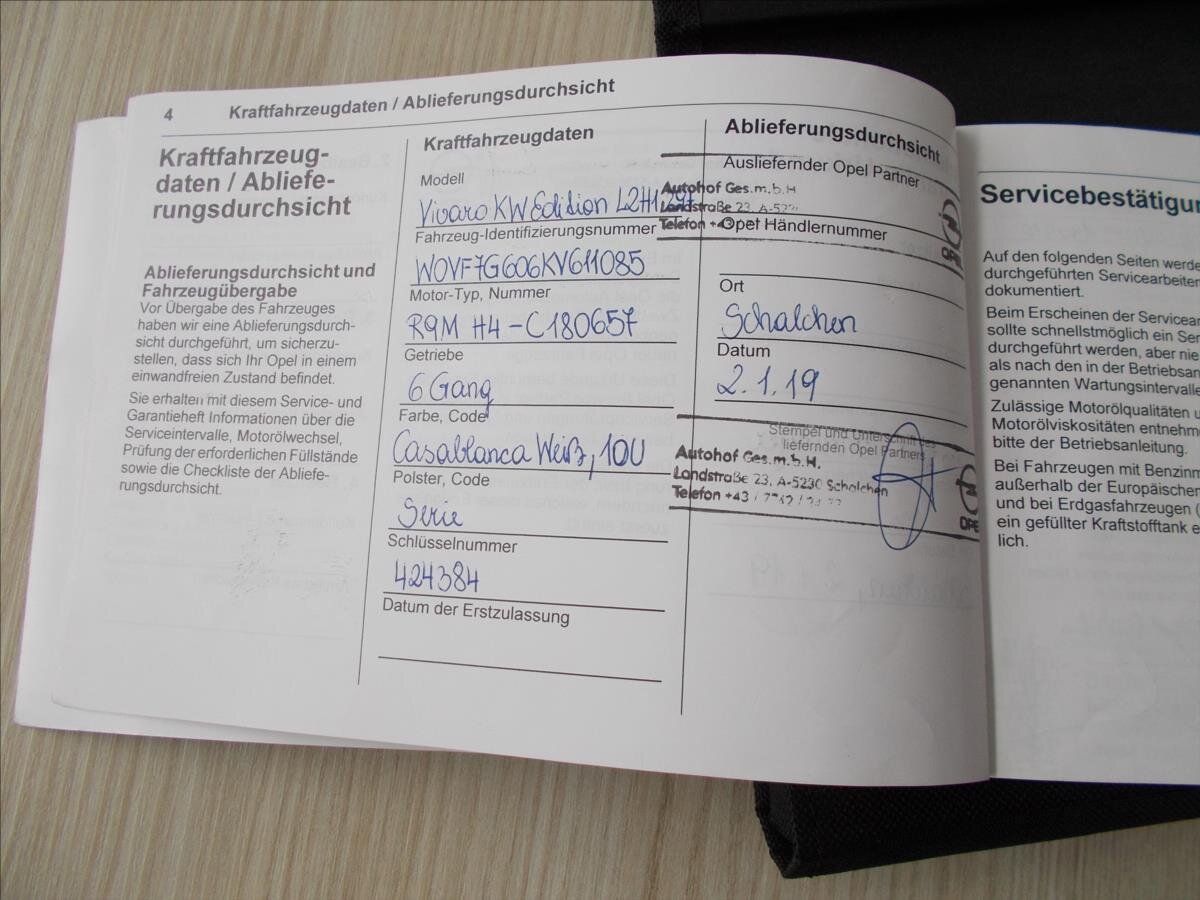 4
Kraftfahrzeugdaten / Ablieferungsdurchsicht
Kraftfahrzeug-
daten / Abliefe-
rungsdurchsicht
Ablieferungsdurchsicht und
Fahrzeugübergabe
Vor Übergabe des Fahrzeuges
haben wir eine Ablieferungsdurch-
sicht durchgeführt, um sicherzu-
stellen, dass sich Ihr Opel in einem
einwandfreien Zustand befindet.
Sie erhalten mit diesem Service- und
Garantieheft Informationen über die
Serviceintervalle, Motorölwechsel,
Prüfung der erforderlichen Füllstände
sowie die Checkliste der Abliefe-
rungsdurchsicht.
Kraftfahrzeugdaten
Modell
Vivaro KW Edition L2H1 2,9t
Fahrzeug-Identifizierungsnummer
W0VF7G606KV611085
Motor-Typ, Nummer
R9M H4 - C180657
Getriebe
6 Gang
Farbe, Code
Casablanca Weiß, 10U
Polster, Code
Serie
Schlüsselnummer
424384
Datum der Erstzulassung
Ablieferungsdurchsicht
Ausliefernder Opel Partner
Autohof Ges.m.b.H
Landstraße 23, A-523
Telefon +43
Opel Händlernummer
OPEL
Ort
Schalchen
Datum
2.1.19
Stempel und Unterschrift des
liefernden Opel Partners
Autohof Ges.m.b.H.
Landstraße 23, A-5230 Schalchen
Telefon +43 /
OPE
Servicebestätigu
Auf den folgenden Seiten werde
durchgeführten Servicearbeiten
dokumentiert.
Beim Erscheinen der Servicean
sollte schnellstmöglich ein Ser
durchgeführt werden, aber nie
als nach den in der Betriebsan
genannten Wartungsintervalle
Zulässige Motorölqualitäten u
Motorölviskositäten entnehme
bitte der Betriebsanleitung.
Bei Fahrzeugen mit Benzinm
außerhalb der Europäischen
und bei Erdgasfahrzeugen (
ein gefüllter Kraftstofftank e
lich.